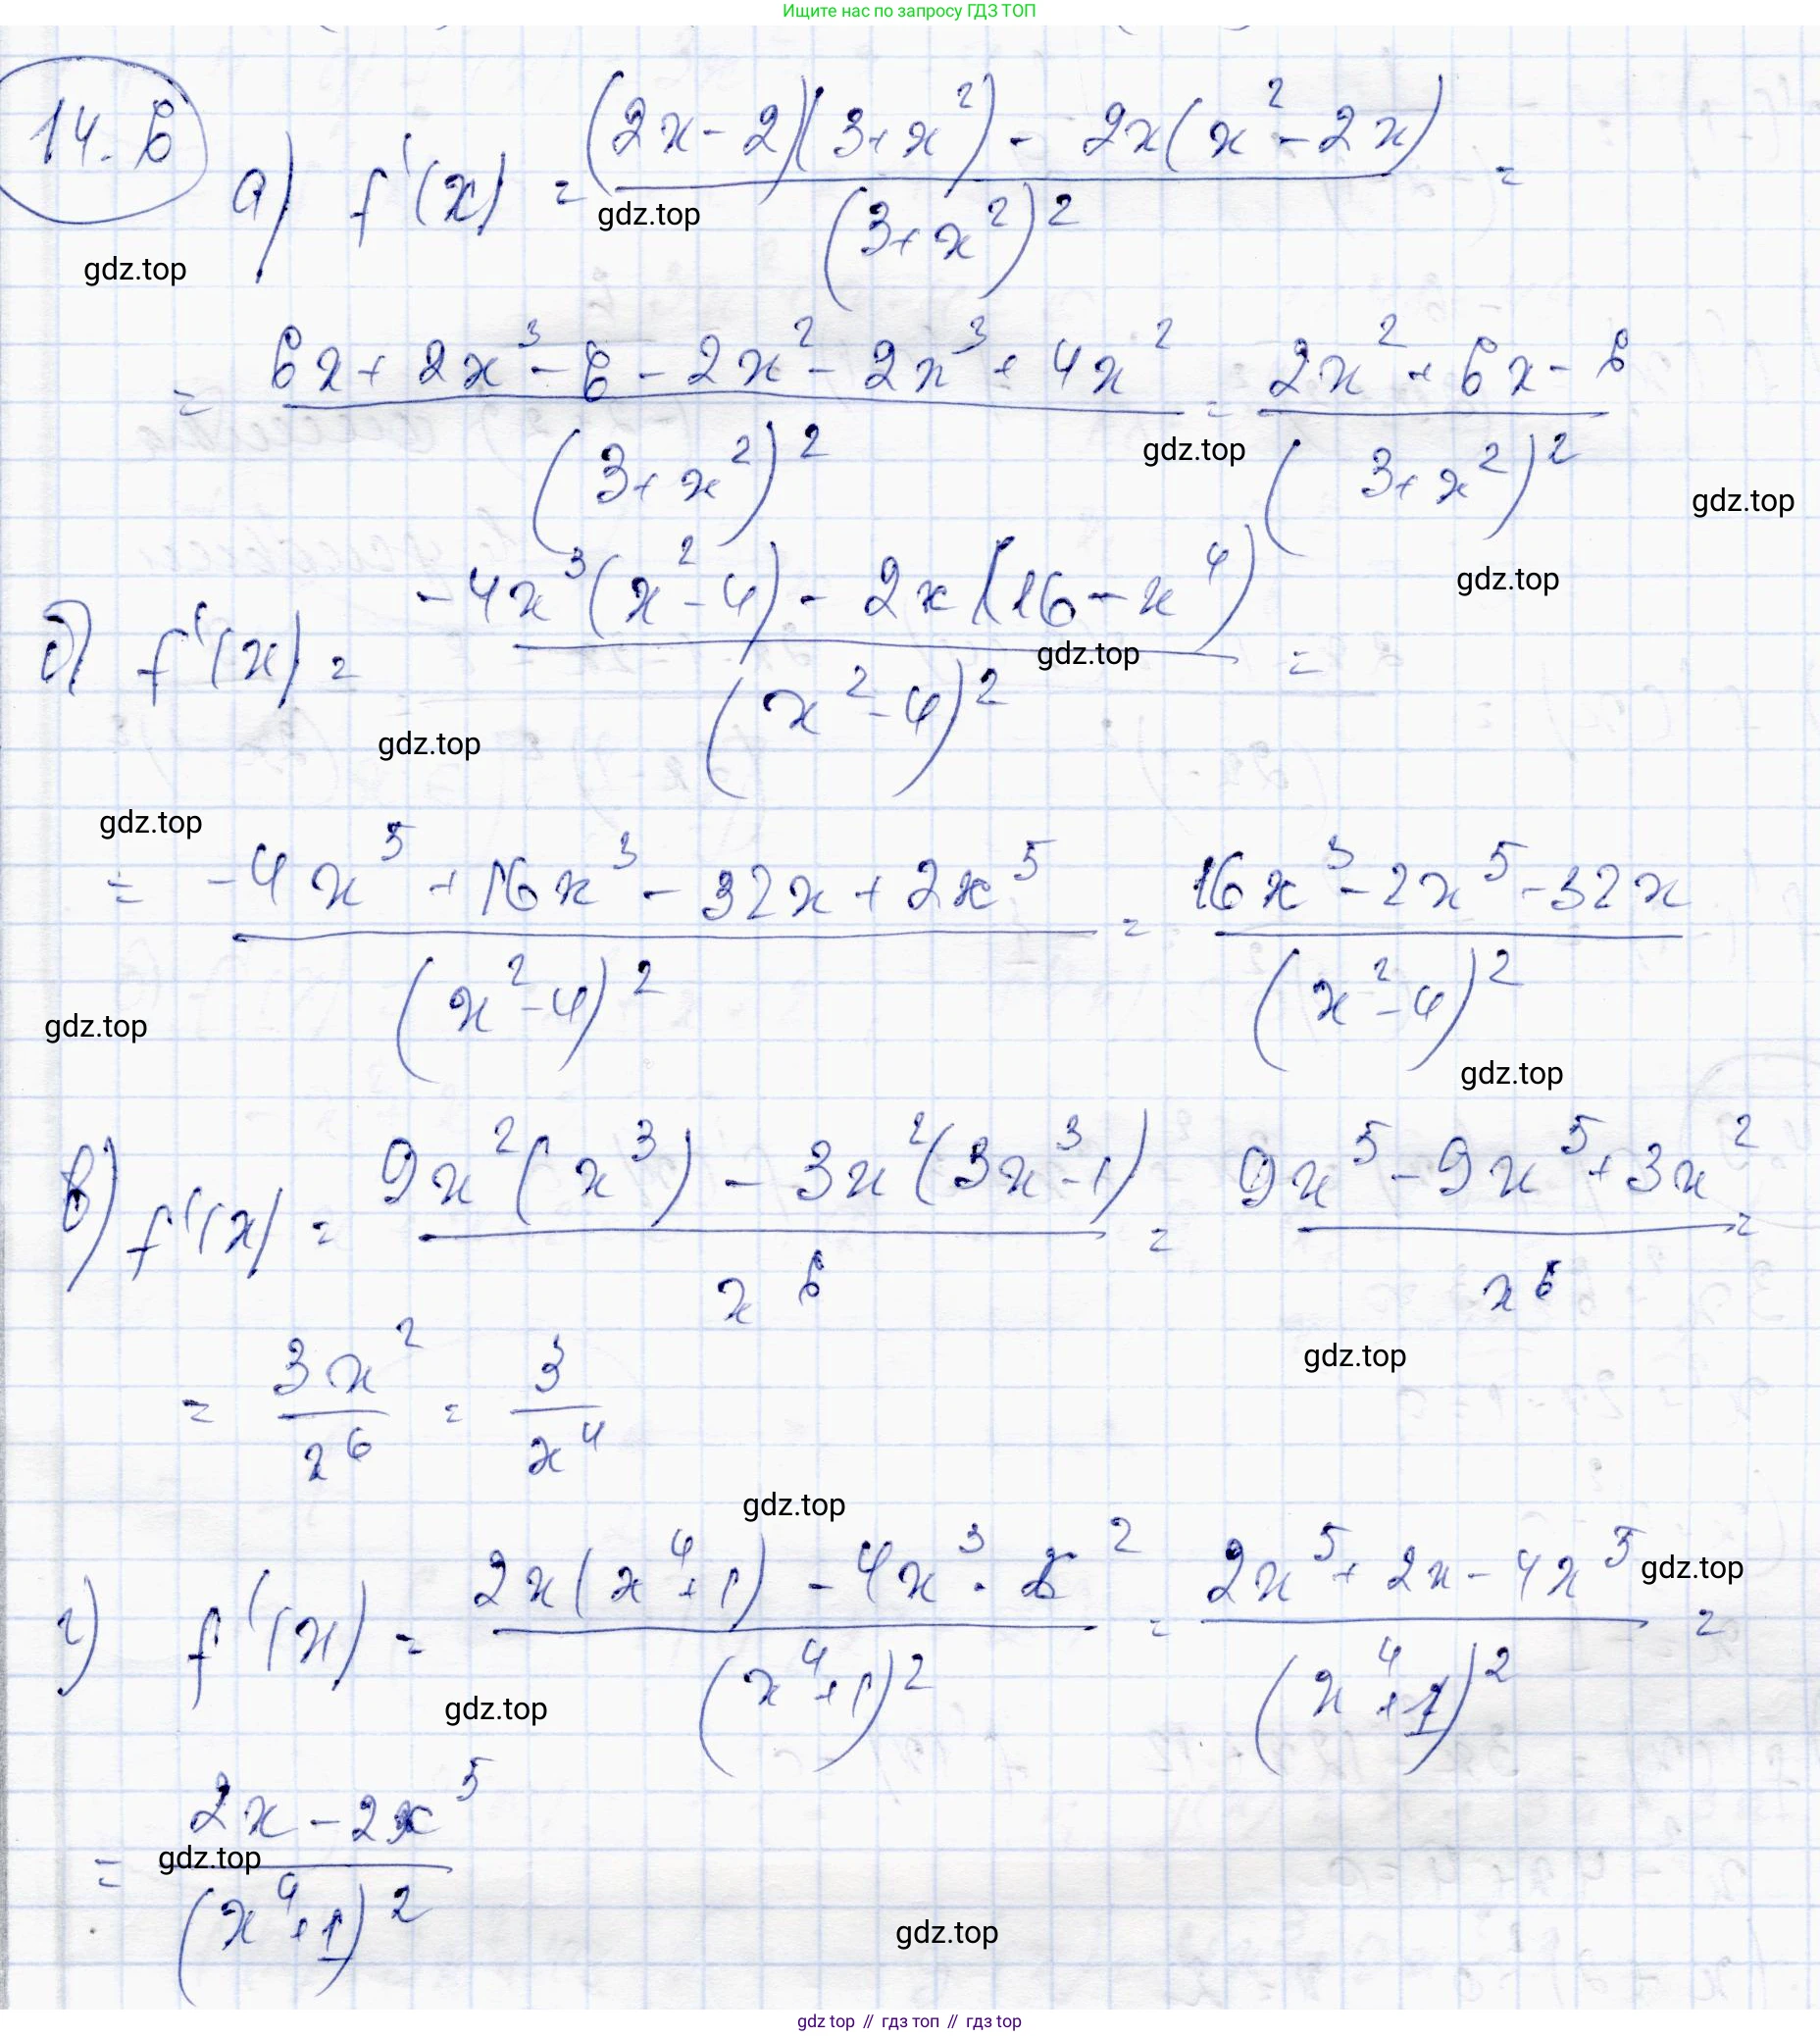 Ищите нас по запросу ГДЗ ТОП
14.6
а) f'(x) = ((2x-2)(3+x²) - 2x(x²-2x)) / (3+x²)² =
gdz.top
gdz.top
= (6x + 2x³ - 6 - 2x² - 2x³ + 4x²) / (3+x²)² = (2x² + 6x - 6) / (3+x²)²
gdz.top
gdz.top
gdz.top
б) f'(x) = (-4x³(x²-4) - 2x(16-x⁴)) / (x²-4)² =
gdz.top
gdz.top
gdz.top
= (-4x⁵ + 16x³ - 32x + 2x⁵) / (x²-4)² = (16x³ - 2x⁵ - 32x) / (x²-4)²
gdz.top
gdz.top
в) f'(x) = (9x²(x³) - 3x²(3x³-1)) / x⁶ = (9x⁵ - 9x⁵ + 3x²) / x⁶ =
gdz.top
= 3x² / x⁶ = 3 / x⁴
gdz.top
г) f'(x) = (2x(x⁴+1) - 4x³ · x²) / (x⁴+1)² = (2x⁵ + 2x - 4x⁵) / (x⁴+1)² =
gdz.top
gdz.top
= (2x - 2x⁵) / (x⁴+1)²
gdz.top
gdz.top
gdz top // гдз топ // гдз top